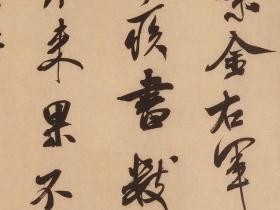 金右軍
疾書數
来果不